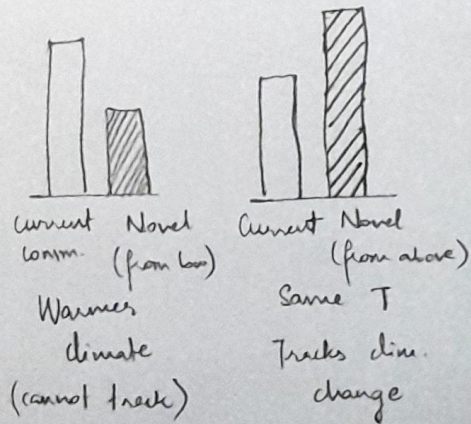 Current Novel
comm. (from low)
Warmer
climate
(cannot track)
Current Novel
(from above)
Same T
Tracks clim.
change